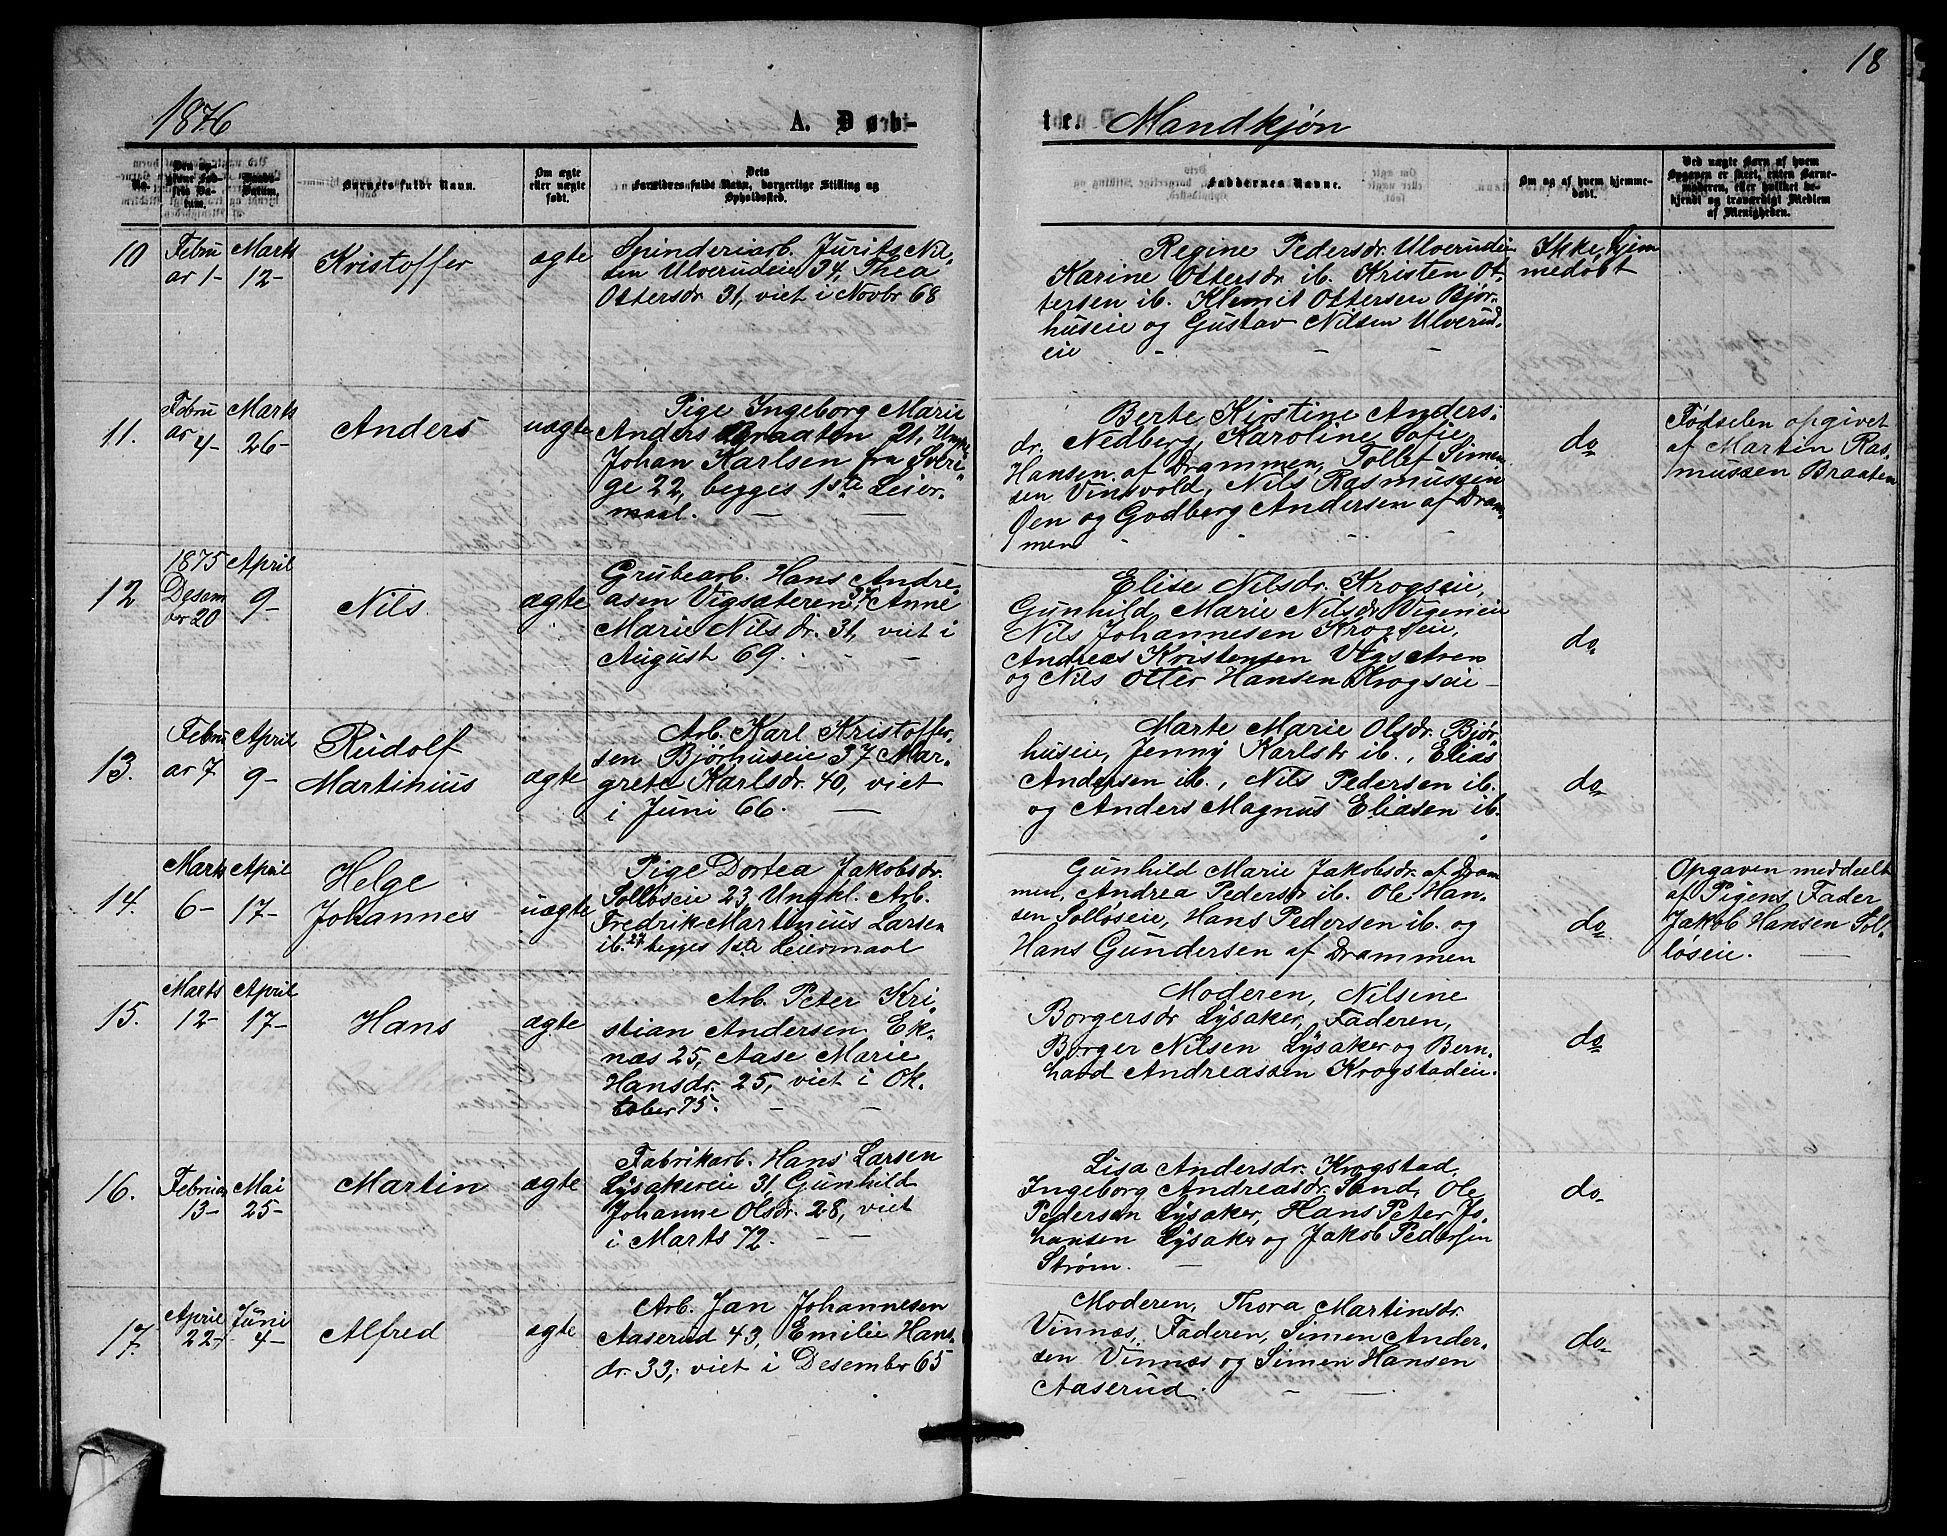 18
1876
A. Døb-
te. Mandkjøn
No.
Den op-
givne Fød-
sels Da-
tum.
Daabs
Datum.
Barnets fulde Navn.
Om ægte
eller uægte
født.
Dets
Forældres fulde Navn, borgerlige Stilling og
Opholdssted.
Faddernes Navne.
Om og af hvem hjemme-
døbt.
Ved uægte Barn af hvem
Opgaven er skeet, enten Barne-
moderen, eller hvilket be-
kjendt og troværdigt Medlem
af Menigheden.
10
Febru
ar 1-
Marts
12-
Kristoffer
ægte
Spinderiarb. Jurits Nil-
sen Ulverudeie 34, Thea
Ottersdr 31, viet i Novbr 68
Regine Pedersdr. Ulverudeie
Karine Ottersdr ib. Kristen Ot-
tersen ib. Klemit Ottersen Bjør-
huseie og Gustav Nilsen Ulverud-
eie - - -
Ikke hjem
medøbt
11.
Febru
ar 4-
Marts
26-
Anders
uægte
Pige Ingeborg Marie
Anders Braaten 21,
Johan Karlsen fra Sveri-
ge 22, begges 1ste Leier-
maal. - -
Berte Kirstine Anders-
dr. Nedberg, Karoline Sofie
Hansen af Drammen, Tollef Simen
sen Vinsvold, Nils Rasmussen
Øen og Godberg Andersen af Dram-
men - - - -
do
Fødselen opgivet
af Martin Ras-
mussen Braaten
12
1875
Desem
br 20
April
9-
Nils
ægte
Grubearb. Hans Andre-
asen Vigsæteren 37, Anne
Marie Nilsdr. 31, viet i
August 69. - -
Elise Nilsdr. Krogseie,
Gunhild Marie Nilsdr Vigeneie
Nils Johannesen Krogseie,
Andreas Kristensen Vigsæteren
og Nils Otter Hansen Krogseie -
do
13.
Febru
ar 7
April
9-
Rudolf
Martinius
ægte
Arb. Karl Kristoffer-
sen Bjørhuseie 37 Mar-
grete Karlsdr. 40, viet
i Juni 66. -
Marte Marie Olsdr. Bjør-
huseie, Jenny Karlsdr ib., Elias
Andersen ib., Nils Pedersen ib.
og Anders Magnus Eliasen ib.
do
14.
Marts
6-
April
17-
Helge
Johannes
uægte
Pige Dortea Jakobsdr.
Solløseie 23, Ungkl. Arb.
Fredrik Martinius Larsen
ib. 27 begges 1ste Leiermaal
Gunhild Marie Jakobsdr. af Dram
men, Andrea Pedersdr ib. Ole Han-
sen Solløseie, Hans Pedersen ib. og
Hans Gundersen af Drammen
do
Opgaven meddeelt
af Pigens Fader
Jakob Hansen Sol-
løseie. -
15.
Marts
12-
April
17-
Hans
ægte
Arb. Peter Kri-
stian Andersen Ek-
næs 25, Aase Marie
Hansdr. 25, viet i Ok-
tober 75. - -
Moderen, Nilsine
Borgersdr Lysaker, Faderen,
Borger Nilsen Lysaker og Bern-
hard Andreassen Krogstadeie.
do
16.
Februar
13-
Mai
25-
Martin
ægte
Fabrikarb. Hans Larsen
Lysakereie 31, Gunhild
Johanne Olsdr. 28, viet
i Marts 72. - -
Lisa Andersdr. Krogstad,
Ingeborg Andreasdr. Sand, Ole
Pedersen Lysaker, Hans Peter Jo-
hansen Lysaker og Jakob Pedersen
Strøm. -
do
17.
April
22-
Juni
4-
Alfred
ægte
Arb. Jan Johannesen
Aaserud 43, Emilie Hans-
dr. 33, viet i Desember 65
Moderen, Thora Martinsdr.
Vinnæs, Faderen, Simen Ander-
sen Vinnæs og Simen Hansen
Aaserud. - -
do